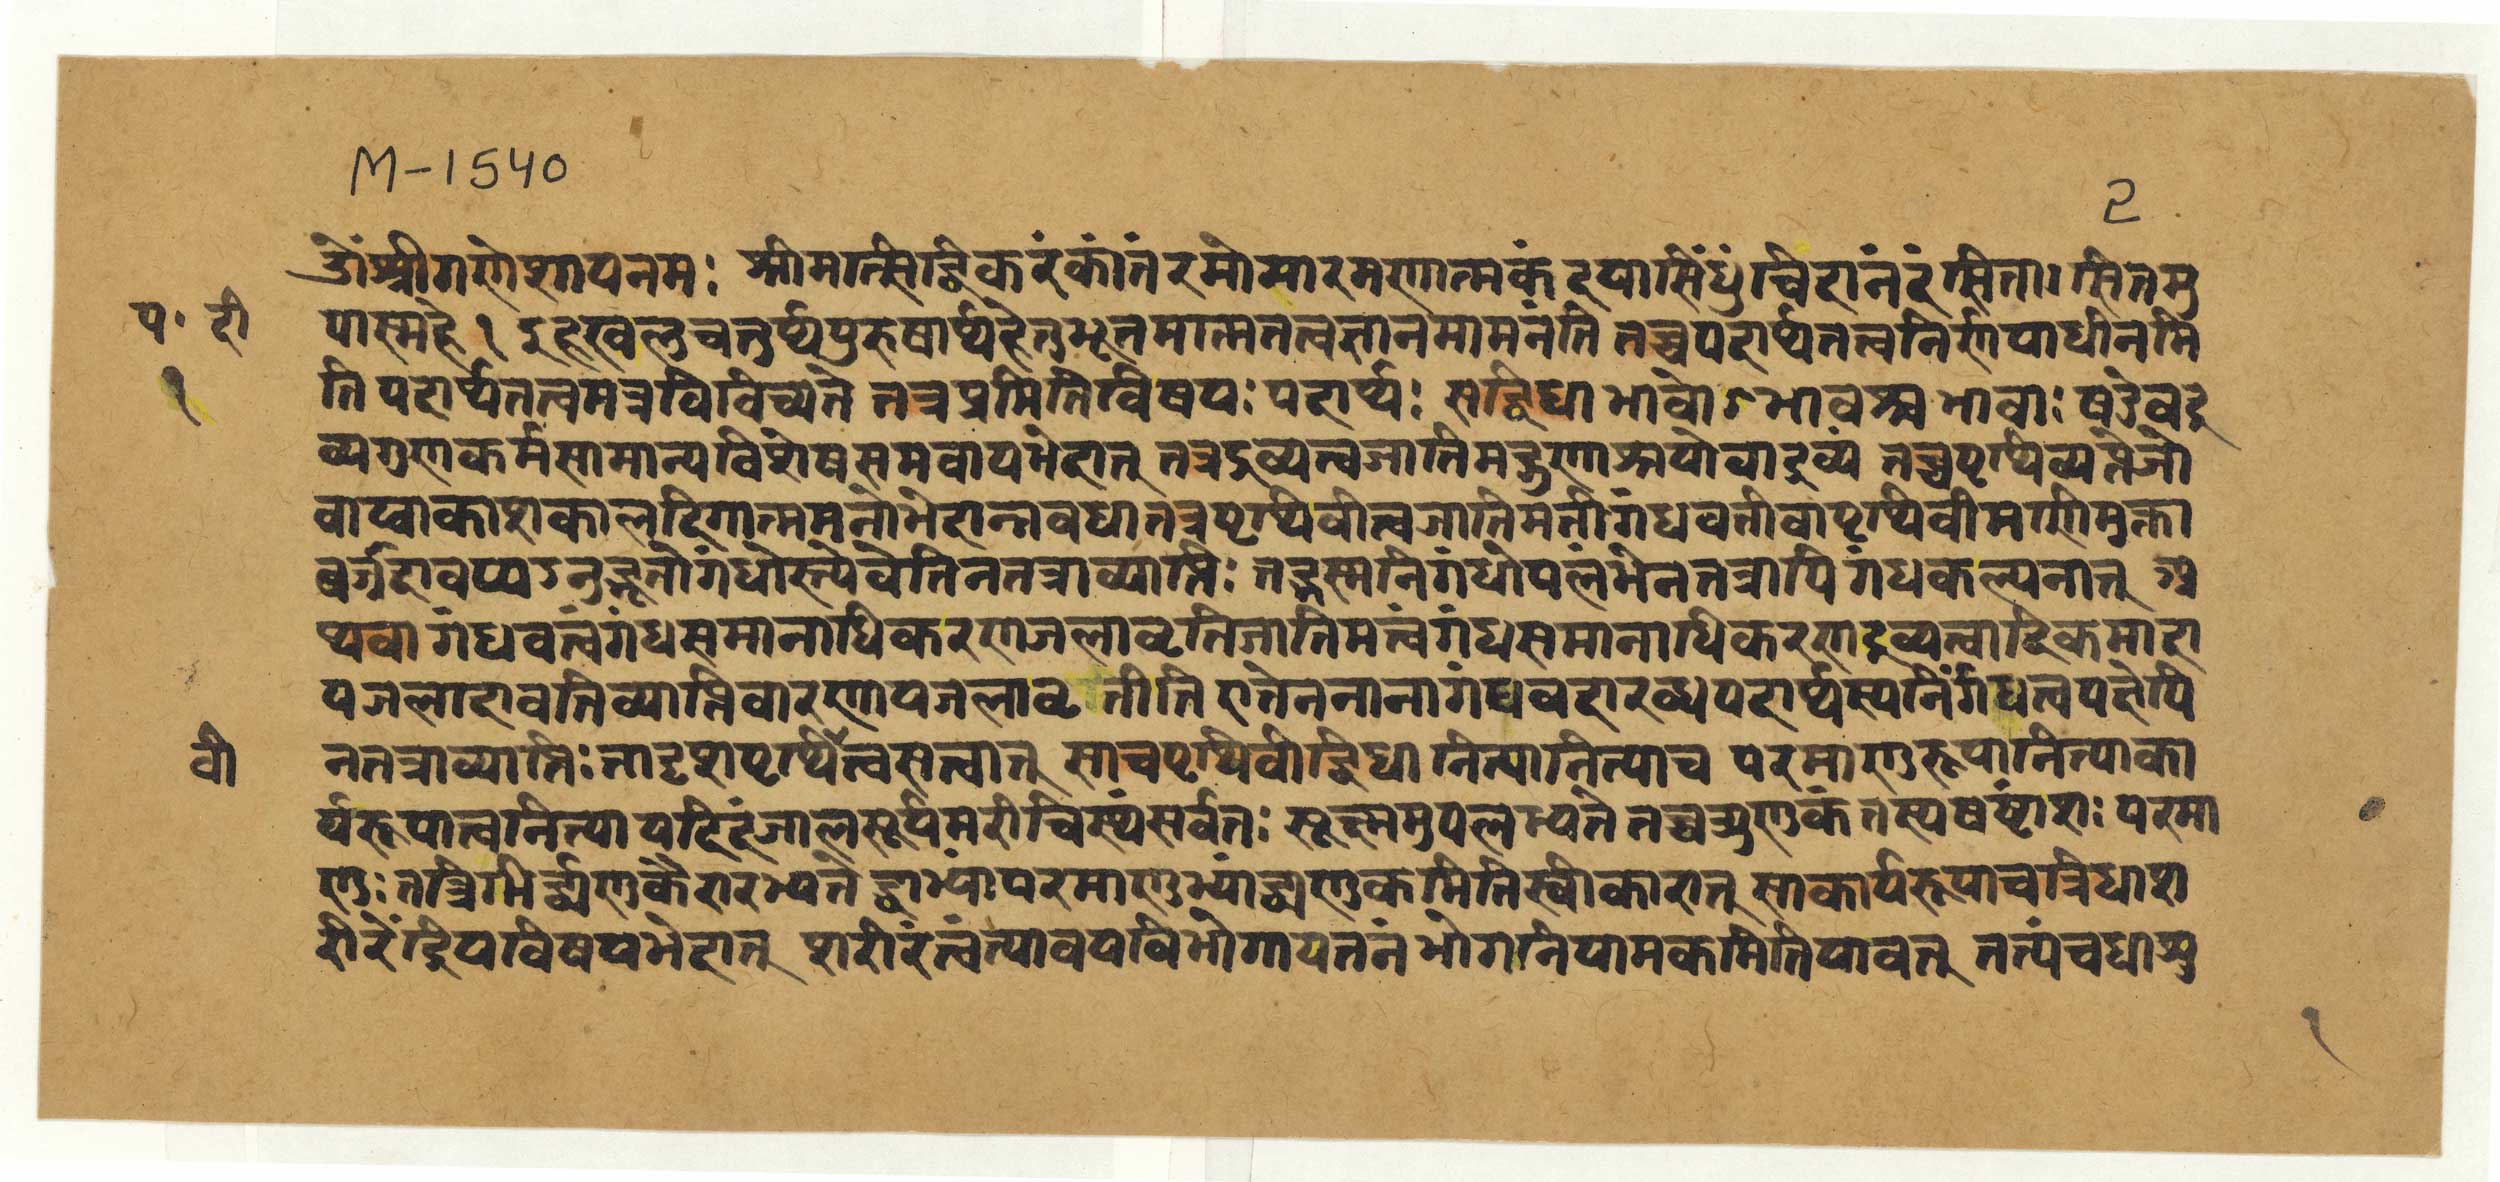 M-1540
2
ॐश्रीगणेशायनमः श्रीमात्सिद्धिकरंकांतंरमोमारमणात्मकं दयासिंधुंचिदानंदंसितासितमु
प॰ दी
पास्महे १ इहखलुचतुर्थपुरुषार्थहेतुभूतमात्मतत्वज्ञानमामनंति तच्चपदार्थतत्वनिर्णयाधीनमि
१
तिपदार्थतत्वमत्रविविच्यते तत्रप्रमितिविषयः पदार्थः सद्विधा भावोऽभावश्च भावाः षडेवद्र
व्यगुणकर्मसामान्यविशेषसमवायभेदात् तत्रद्रव्यत्वजातिमद्गुणाश्रयोवाद्रव्यं तच्चपृथिव्यप्तेजो
वाय्वाकाशकालदिगात्ममनोभेदान्नवधा तत्रपृथिवीत्वजातिमतीगंधवतीवापृथिवी मणीमुक्ता
वर्ज्रादावप्यऽनुद्भूतोगंधोस्त्येवेतिनतत्राव्याप्तिः तद्भस्मनिगंधोपलंभेनतत्रापिगंधकल्पनात् अ
थवा गंधवत्वंगंधसमानाधिकरणजलावृतिजातिमत्वंगंधसमानाधिकरणद्रव्यत्वादिकमादा
यजलादावतिव्याप्तिवारणायजलावृ तीति एतेननानागंधवदारब्धपदार्थस्यनिर्गंधत्वपक्षेपि
वी
नतत्राव्याप्तिः तादृशपृथित्वसत्वात् साचपृथिवीद्विधा नित्यानित्याच परमाणुरूपानित्याका
र्यरूपात्वनित्या यदिदंजालसूर्यमरीचिस्थंसर्वतः सूक्ष्ममुपलभ्यते तच्चत्र्यणुकं तस्यषष्टांशः परमा
णुः तत्रिभिर्द्व्यणुकैरारभ्यते द्वाभ्यांपरमाणुभ्यांद्व्यणुकमितिस्वीकारात् साकार्यरूपाचत्रिधाश
रीरेंद्रियविषयभेदात् शरीरंत्वंत्यावयविभोगायतनं भोगनियामकमितियावत् तत्पंचधाअ
१